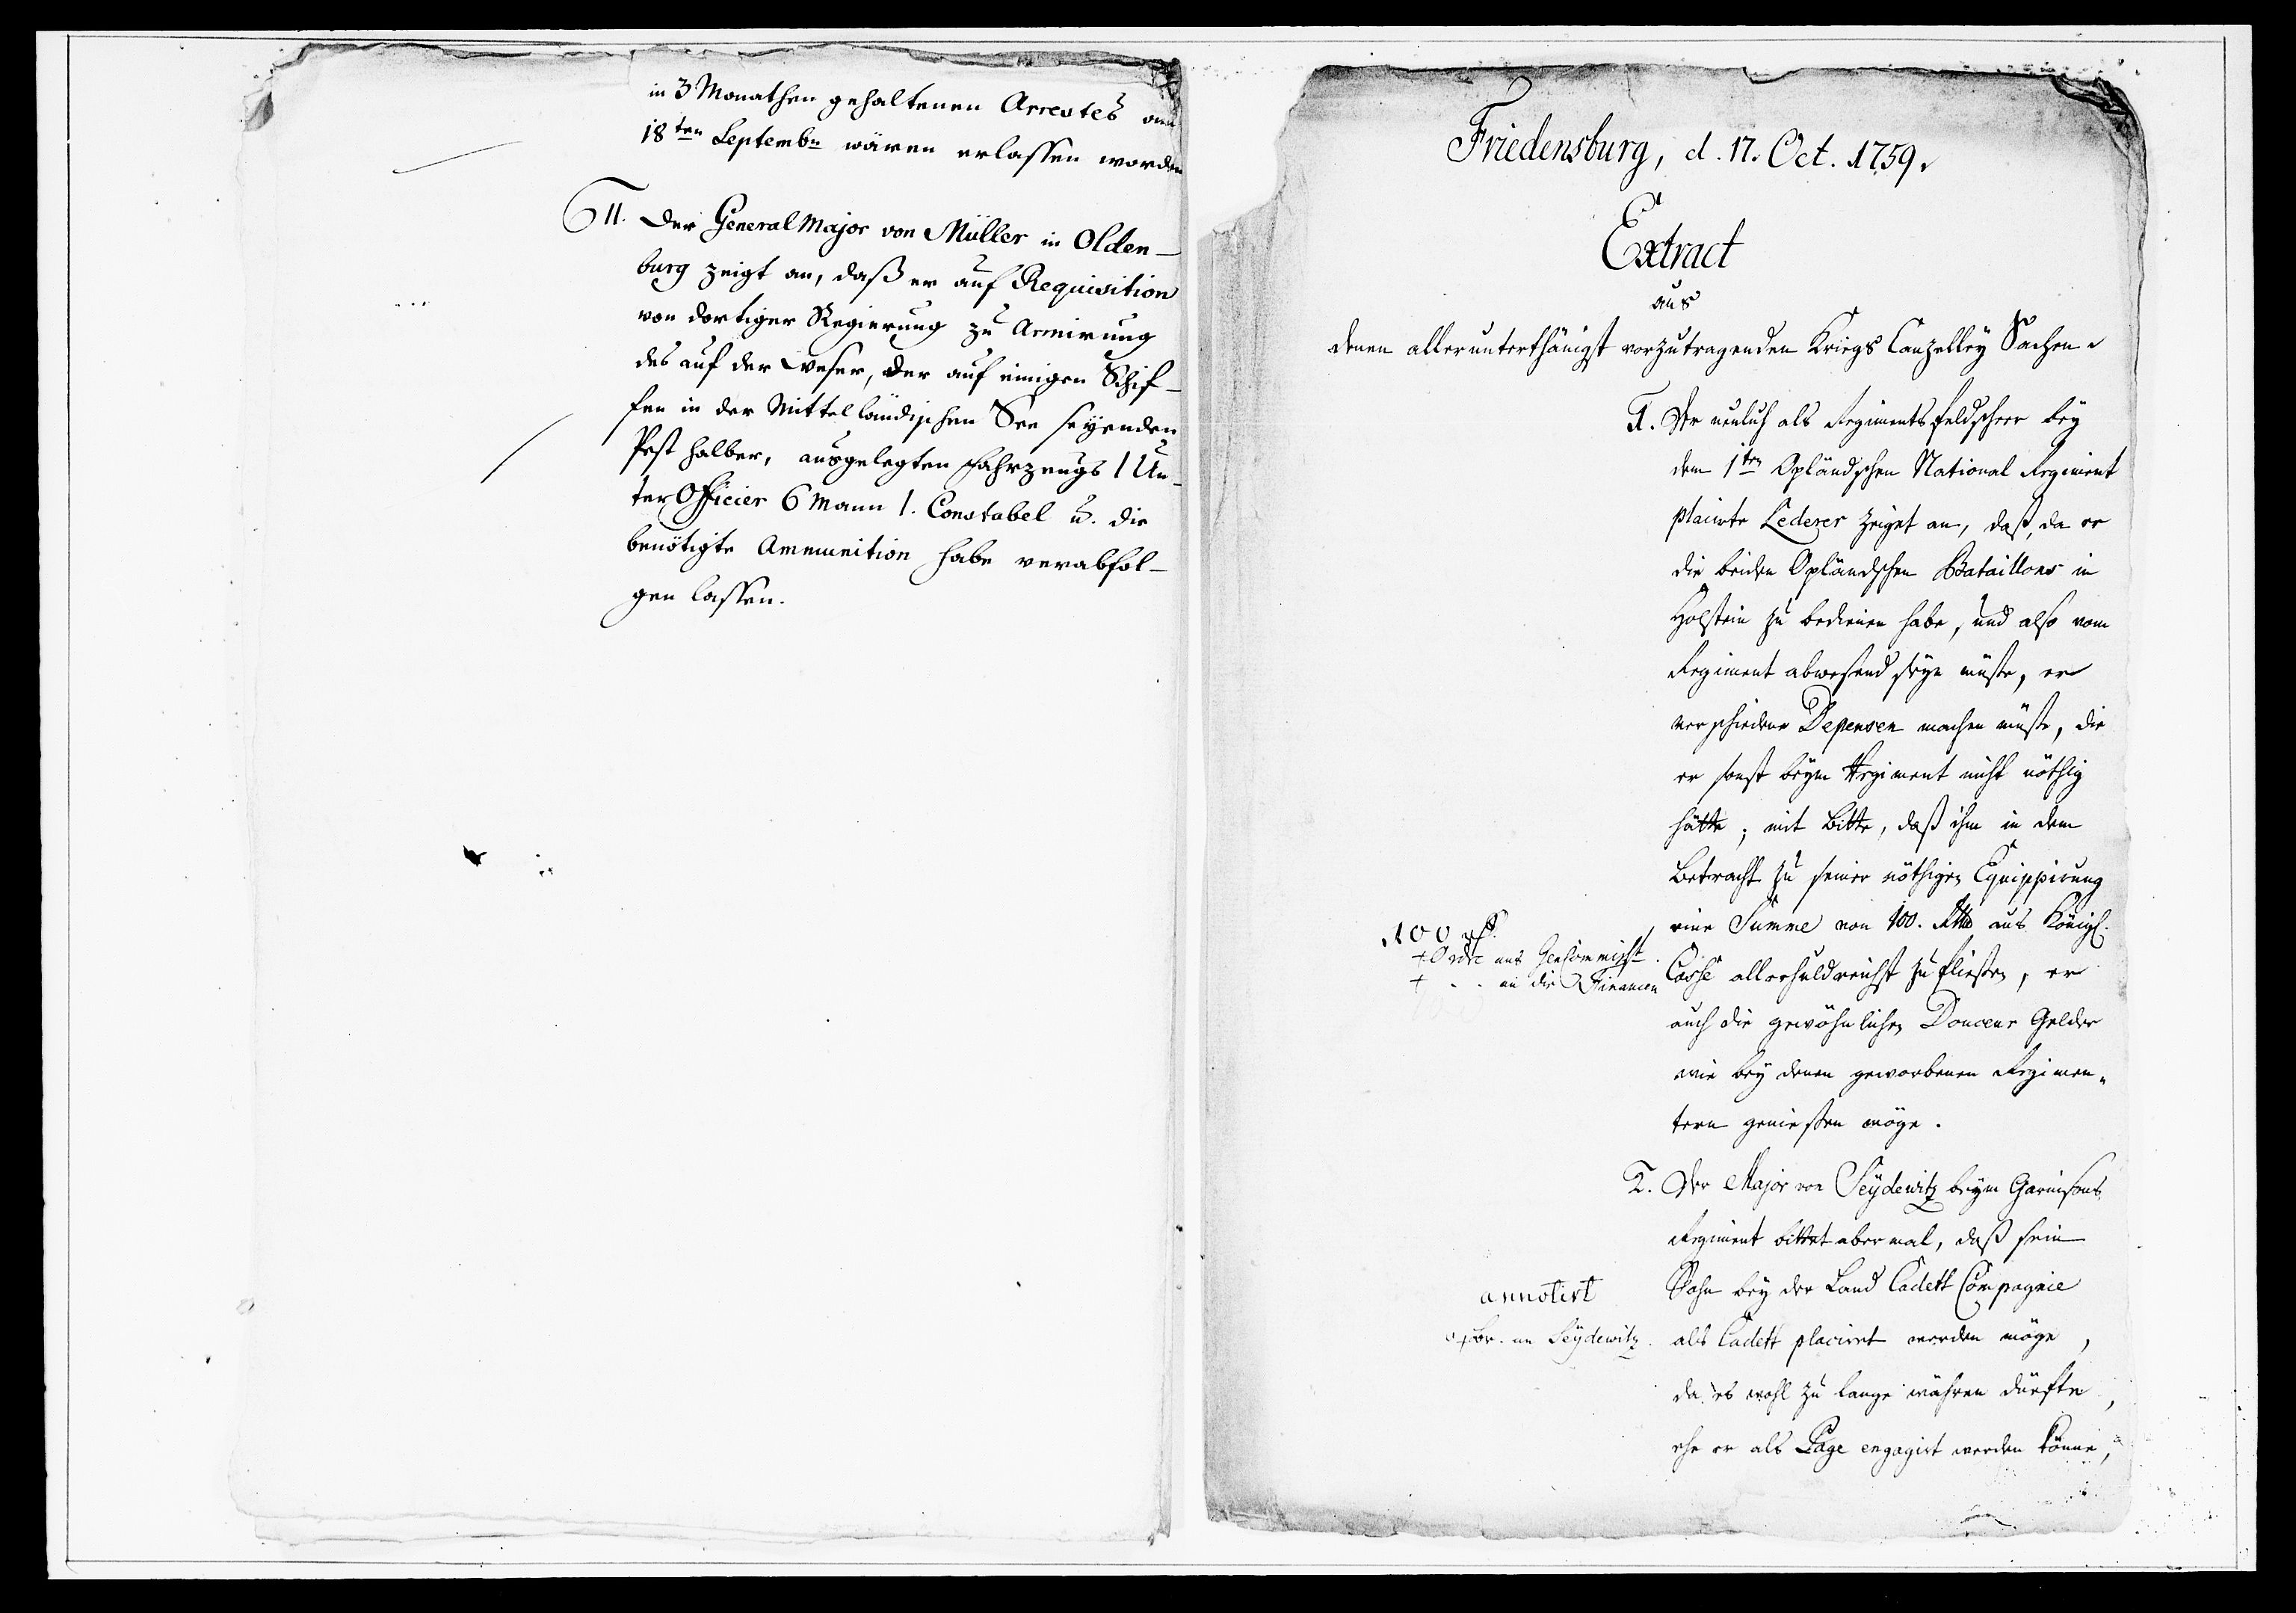 in 3 Monathen gehaltenen Arrestes vom
18ten Septembr wären erlassen worden
11. Der General Major von Müller in Olden-
burg zeigt an, daß er auf Requisition
von dortiger Regierung zu Armirung
des auf der Weser, der auf einigen Schif-
fen in der Mittelländischen See seyenden
Pest halber, ausgelegten Fahrzeugs 1 Un-
ter Officier 6 Mann 1. Constabel u. die
benötigte Ammunition habe verabfol-
gen lassen.
Friedensburg, d. 17. Oct. 1759.
Extract
aus
denen allerunterthänigst vorzutragenden Kriegs Canzelley Sachen
1. Der neulich als Regimentsfeldscheer bey
dem 1ten Opländschen National Regiment
placirte Lederer zeiget an, daß, da er
die beiden Opländschen Bataillons in
Holstein zu bedienen habe, und also vom
Regiment abwesend seyn müste, er
verschiedene Depensen machen müste, die
er sonst beym Regiment nicht nöthig
hätte; mit Bitte, daß ihm in dem
Betracht zu seiner nöthigen Equippirung
eine Summe von 100. Rthlr aus Königl.
Casse allerhuldreichst zu fließen, er
auch die gewöhnlichen Douceur Gelder
wie bey denen geworbenen Regimen-
tern genießen möge.
100 rf.
+ Ordre ans GenCommisst.
+ - - an die Financen
2. Der Major von Seydewitz beym Garnisons
Regiment bittet abermal, daß sein
Sohn bey der Land Cadett Compagnie
als Cadett placiret werden möge,
da es wohl zu lange währen dürfte,
ehe er als Page engagirt werden könne,
annotirt
an Seydewitz.